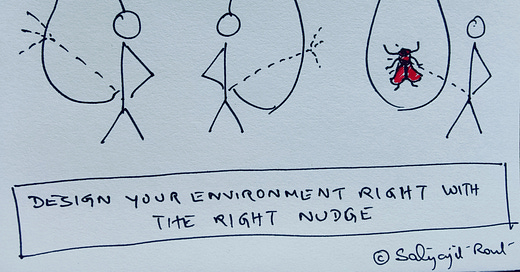 DESIGN YOUR ENVIRONMENT RIGHT WITH
THE RIGHT NUDGE
© Satyajit Rout